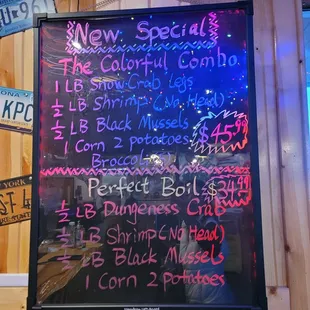 New Special
The Colorful Combo
1 LB Snow Crab legs
1/2 LB Shrimp (No Head)
1/2 LB Black Mussels
$45.99
1 Corn 2 potatoes
Broccoli
Perfect Boil $34.99
1/2 LB Dungeness Crab
1/2 LB Shrimp (No Head)
1/2 LB Black Mussels
1 Corn 2 Potatoes
KPC
YORK